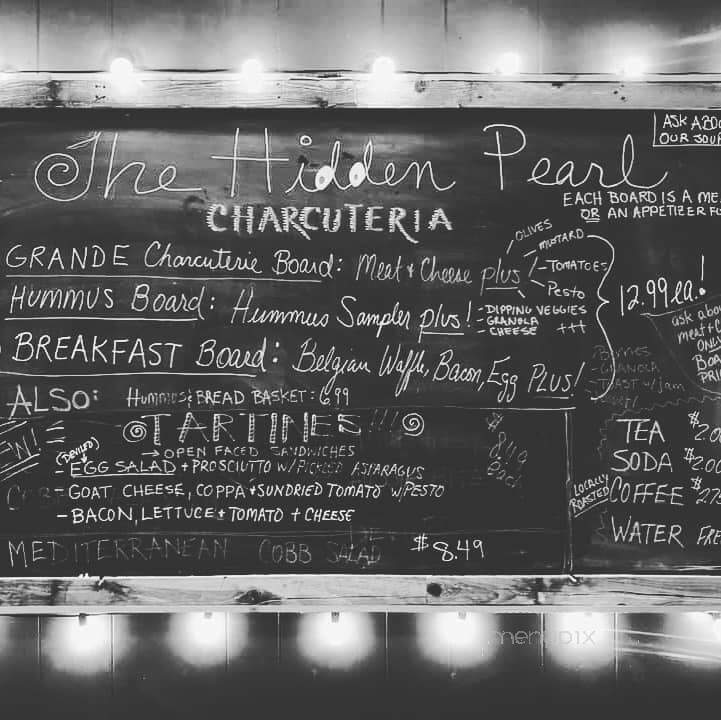 ASK ABO
OUR SOUP
The Hidden Pearl
CHARCUTERIA
EACH BOARD IS A ME
OR AN APPETIZER FO
GRANDE Charcuterie Board: Meat & Cheese plus
OLIVES
MUSTARD
- TOMATOES
Pesto
HUMMUS BOARD: Hummus Sampler plus!
- DIPPING VEGGIES
- GRANOLA
CHEESE +++
12.99 ea.!
ask abou
meat +
ONLY
BOA
PRI
BREAKFAST Board: Belgian Waffle, Bacon, Egg PLUS!
BERRIES
- GRANOLA
- TOAST w/jam
ALSO: Hummus & BREAD BASKET: 6.99
TARTINES!!!
→ OPEN FACED SANDWICHES
$
8.49
each
(DEVILED)
- EGG SALAD + PROSCIUTTO W/PICKLED ASPARAGUS
- GOAT CHEESE, COPPA + SUNDRIED TOMATO W/PESTO
- BACON, LETTUCE + TOMATO + CHEESE
MEDITERRANEAN COBB SALAD $8.49
TEA $2.00
SODA $2.00
LOCALLY
ROASTED
COFFEE $2.75
WATER FRE
menupix